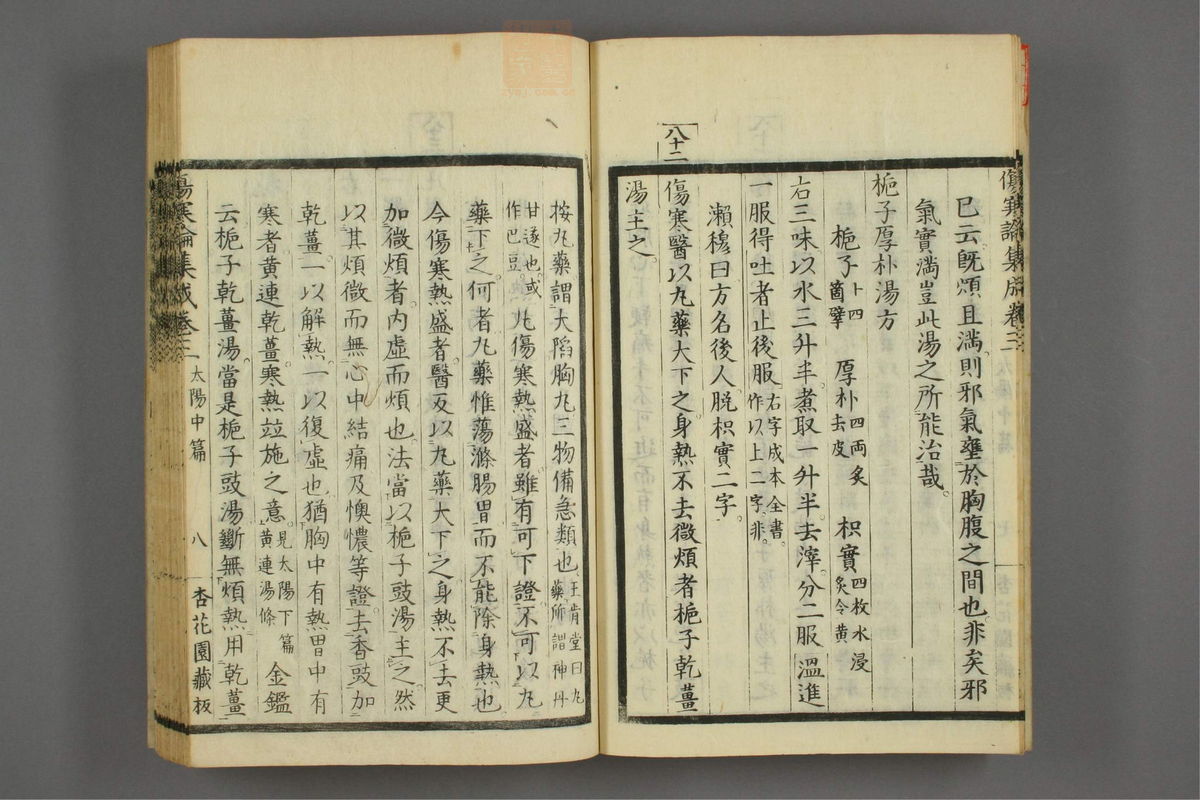 巳云既煩且滿則邪氣壅於胸腹之間也非矣邪
氣實滿豈此湯之所能治哉。
梔子厚朴湯方
梔子十四箇擘 厚朴四兩炙去皮 枳實四枚水浸炙令黃
右三味以水三升半煮取一升半去滓分二服溫進
一服得吐者止後服右字成本全書作以上二字非。
瀨穆曰方名後人脫枳實二字。
八十二
傷寒醫以丸藥大下之身熱不去微煩者梔子乾薑
湯主之。
傷寒論集成卷三
按丸藥謂大陷胸丸三物備急類也王肯堂曰丸藥所謂神丹
甘遂也或作巴豆。凡傷寒熱盛者雖有可下證不可以丸
藥下之。何者丸藥惟蕩滌腸胃而不能除身熱也
今傷寒熱盛者醫反以丸藥大下之身熱不去更
加微煩者內虛而煩也法當以梔子豉湯主之然
以其煩微而無心中結痛及懊憹等證去香豉加
乾薑一以解熱一以復虛也猶胸中有熱胃中有
寒者黃連乾薑寒熱竝施之意見太陽下篇黃連湯條 金鑑
云梔子乾薑湯當是梔子豉湯斷無煩熱用乾薑
傷寒論集成卷三 太陽中篇 八 杏花園藏板